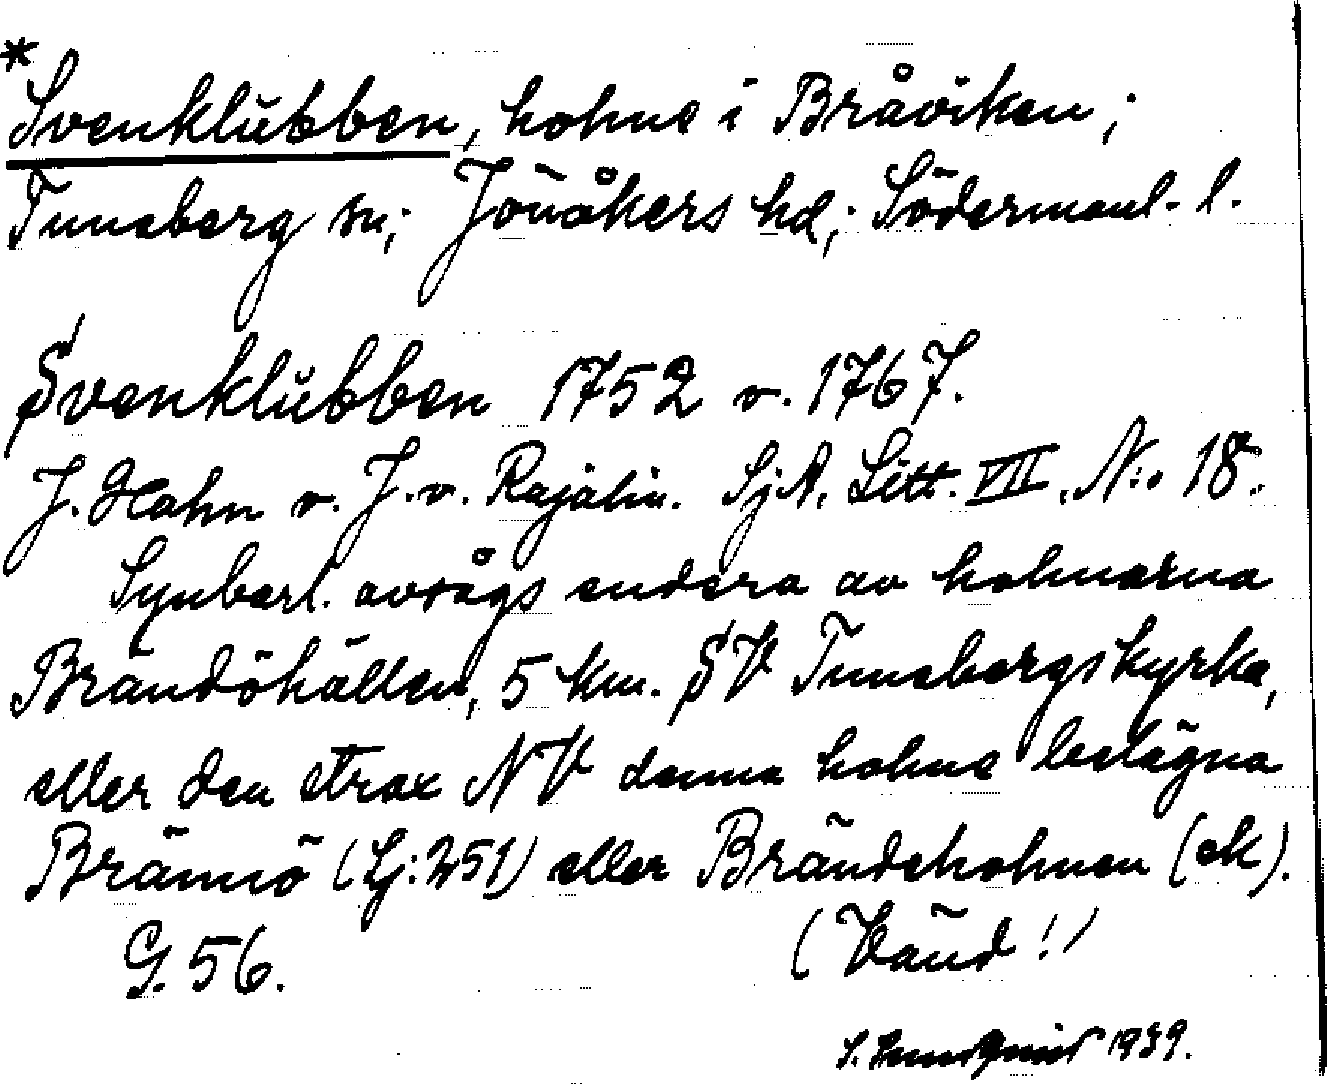 *
Svenklŭbben, holme i Bråviken;
Tunaberg sn; Jönåkers hd; Södermanl. l.
Svenklŭbben 1752 o. 1767.
J. Hahn o. J. v. Rajalin. SjA. Litt. VII. N:o 18.
Synbarl. avsågs endera av holmarna
Brändöhällen, 5 km. SV Tunabergs kyrka,
eller den strax NV denna holme belägna
Brännö (Lj:251) eller Brändeholmen (ek).
G. 56. (Vänd!)
S. Lundqvist 1939.